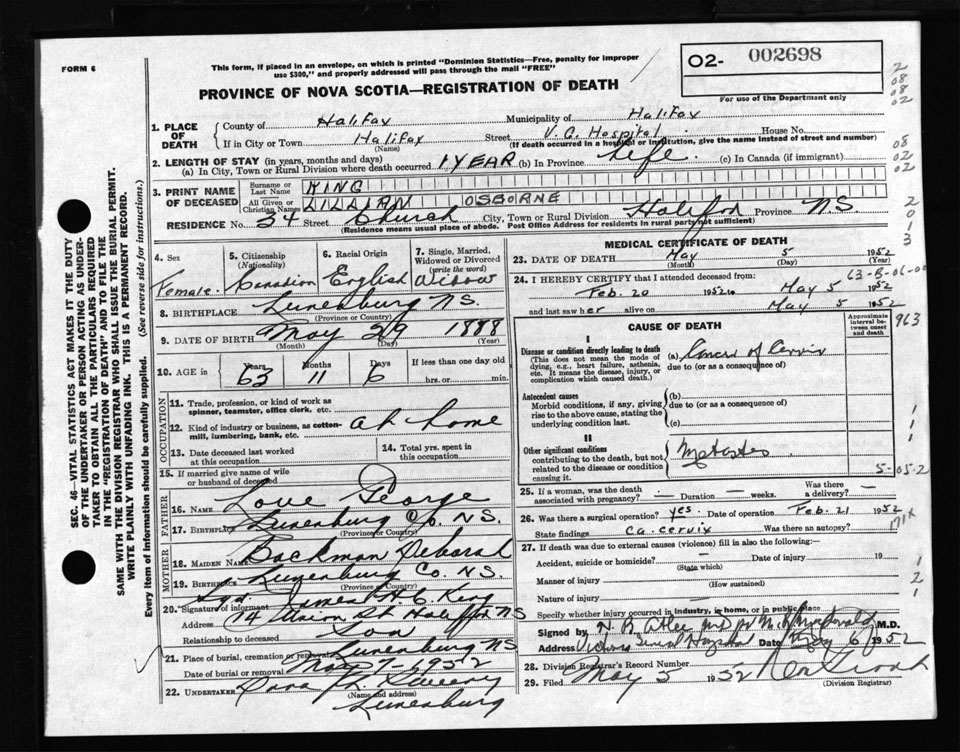 FORM 6
This form, if placed in an envelope, on which is printed "Dominion Statistics—Free, penalty for improper
use $300," and properly addressed will pass through the mail "FREE"
PROVINCE OF NOVA SCOTIA—REGISTRATION OF DEATH
02- 002698
For use of the Department only
2
08
08
02
1. PLACE OF DEATH
County of Halifax Municipality of Halifax
If in City or Town Halifax (Name) Street V. G. Hospital House No.
(If death occurred in a hospital or institution, give the name instead of street and number)
08
02
02
2. LENGTH OF STAY (in years, months and days)
(a) In City, Town or Rural Division where death occurred 1 YEAR (b) In Province Life (c) In Canada (if immigrant)
3. PRINT NAME OF DECEASED
Surname or Last Name KING
All Given or Christian Names LILLIAN OSBORNE
RESIDENCE No. 34 Street Church City, Town or Rural Division Halifax Province N.S.
(Residence means usual place of abode. Post Office Address for residents in rural parts not sufficient)
2
0
1
3
SEC. 46—VITAL STATISTICS ACT MAKES IT THE DUTY
OF THE UNDERTAKER OR PERSON ACTING AS UNDER-
TAKER TO OBTAIN ALL THE PARTICULARS REQUIRED
IN THE "REGISTRATION OF DEATH" AND TO FILE THE
SAME WITH THE DIVISION REGISTRAR WHO SHALL ISSUE THE BURIAL PERMIT.
WRITE PLAINLY WITH UNFADING INK. THIS IS A PERMANENT RECORD.
Every item of information should be carefully supplied. (See reverse side for instructions.)
4. Sex Female
5. Citizenship (Nationality) Canadian
6. Racial Origin English
7. Single, Married, Widowed or Divorced (write the word) Widow
8. BIRTHPLACE Lunenburg N.S.
(Province or Country)
9. DATE OF BIRTH May 29 1888
(Month) (Day) (Year)
10. AGE in Years 63 Months 11 Days 6 If less than one day old
hrs. or min.
OCCUPATION
11. Trade, profession, or kind of work as
spinner, teamster, office clerk, etc.
12. Kind of industry or business, as cotton-
mill, lumbering, bank, etc. at home
13. Date deceased last worked
at this occupation
14. Total yrs. spent in
this occupation
15. If married give name of wife
or husband of deceased
FATHER
16. Name Love George
17. Birthplace Lunenburg Co. N.S.
(Province or Country)
MOTHER
18. MAIDEN NAME Backman Deborah
19. Birthplace Lunenburg Co. N.S.
(Province or Country)
20. Signature of informant Sgd. James H. C. King
Address 74 Union St Halifax NS
Relationship to deceased Son
21. Place of burial, cremation or removal Lunenburg NS
Date of burial or removal May 7-1952
22. UNDERTAKER Sweeny
(Name and address)
Lunenburg
MEDICAL CERTIFICATE OF DEATH
23. DATE OF DEATH May 5 1952
(Month) (Day) (Year)
63-B-06-00
24. I HEREBY CERTIFY that I attended deceased from:
Feb. 20 1952 to May 5 1952
and last saw her alive on May 5 1952
CAUSE OF DEATH
Approximate interval between onset and death
963
I
Disease or condition directly leading to death
(This does not mean the mode of
dying, e.g., heart failure, asthenia,
etc. It means the disease, injury, or
complication which caused death.)
(a) Cancer of Cervix
due to (or as a consequence of)
Antecedent causes
Morbid conditions, if any, giving
rise to the above cause, stating the
underlying condition last.
(b)
due to (or as a consequence of)
(c)
1
1
1
II
Other significant conditions
contributing to the death, but not
related to the disease or condition
causing it.
5-05-2
25. If a woman, was the death
associated with pregnancy? — Duration — weeks. Was there
a delivery? —
26. Was there a surgical operation? yes. Date of operation Feb. 21 1952
State findings Ca. cervix Was there an autopsy?
171X
27. If death was due to external causes (violence) fill in also the following:—
Accident, suicide or homicide? Date of injury 19
(State which)
Manner of injury
(How sustained)
Nature of injury
Specify whether injury occurred in industry, in home, or in public place
1
2
1
Signed by H. B. Atlee M.D.
Address Victoria General Hospital Date May 6 1952
28. Division Registrar's Record Number
29. Filed May 5 1952
(Division Registrar)